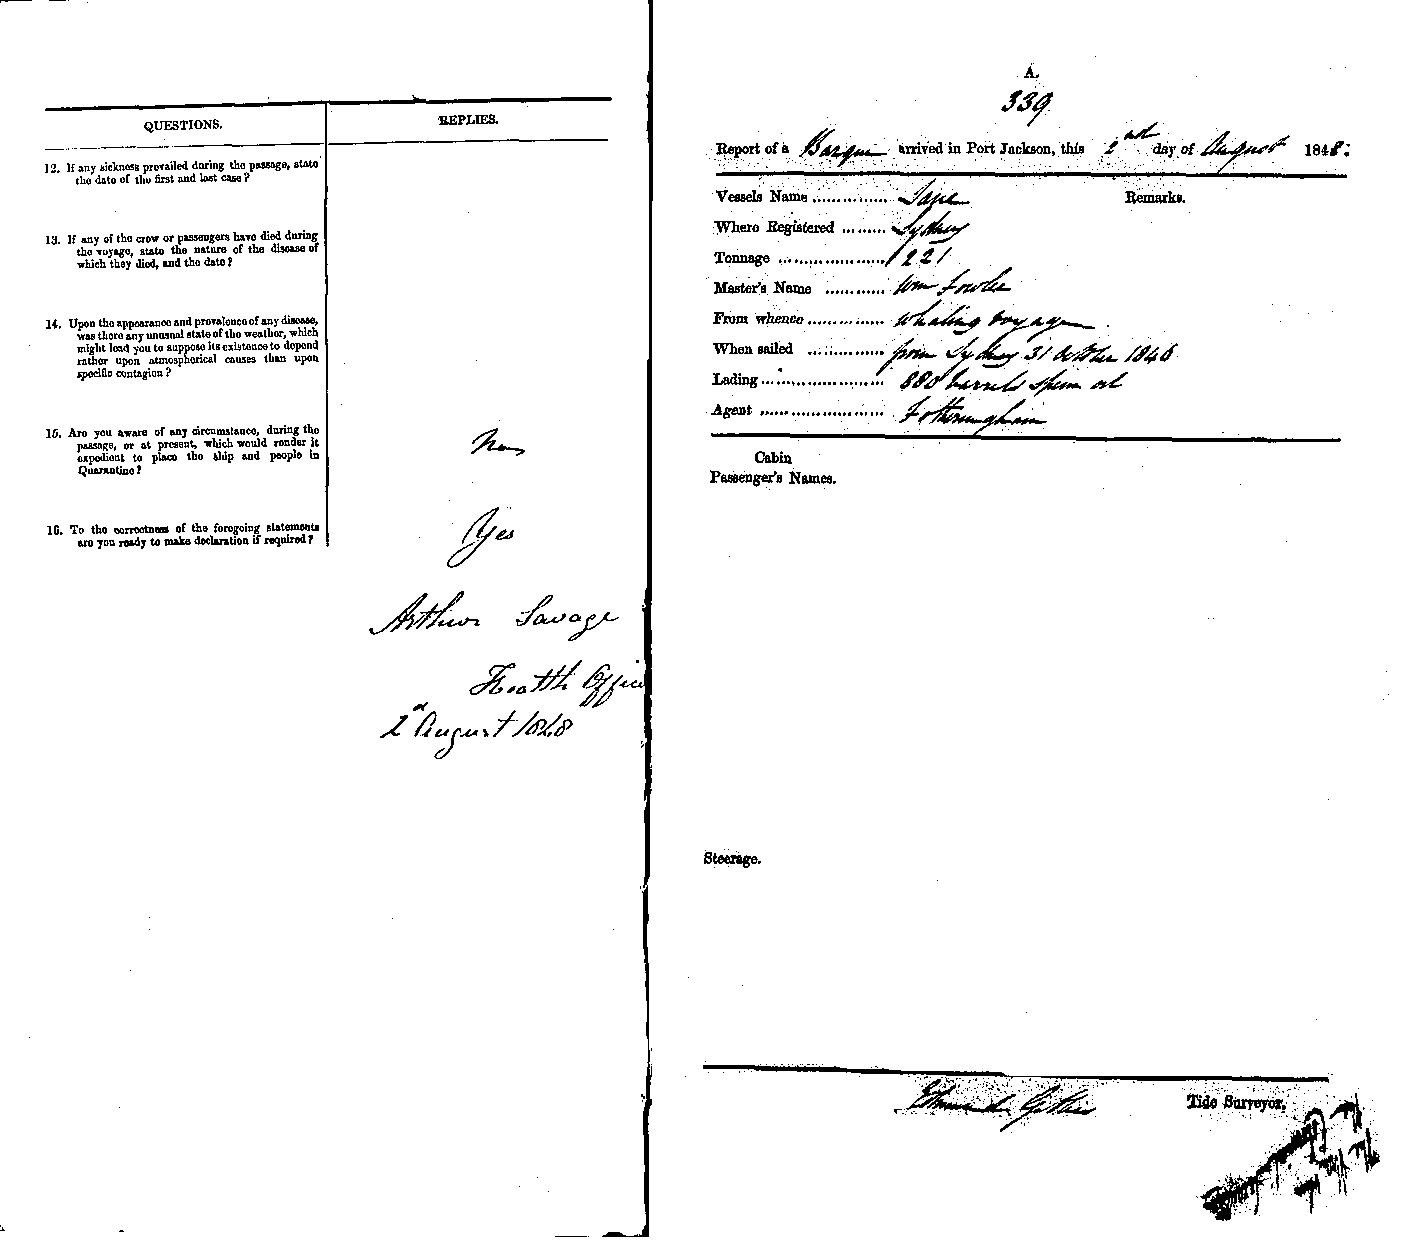 QUESTIONS.
REPLIES.
12. If any sickness prevailed during the passage, state
the date of the first and last case?
13. If any of the crow or passengers have died during
the voyage, state the nature of the disease of
which they died, and the date?
14. Upon the appearance and prevalence of any disease,
was there any unusual state of the weather, which
might lead you to suppose its existence to depend
rather upon atmospherical causes than upon
specific contagion?
15. Are you aware of any circumstance, during the
passage, or at present, which would render it
expedient to place the ship and people in
Quarantine?
No
16. To the correctness of the foregoing statements
are you ready to make declaration if required?
Yes
Arthur Savage
Health Office
2d August 1848
A.
339
Report of a Barque arrived in Port Jackson, this 2nd day of August 1848:
Vessels Name ............... Jane
Remarks.
Where Registered ......... Sydney
Tonnage .................... 221
Master's Name ............ Wm Fowler
From whence .............. Whaling voyage
When sailed .............. from Sydney 31 October 1846
Lading ..................... 880 barrels sperm oil
Agent ...................... Fotheringham
Cabin
Passenger's Names.
Steerage.
Tide Surveyor.